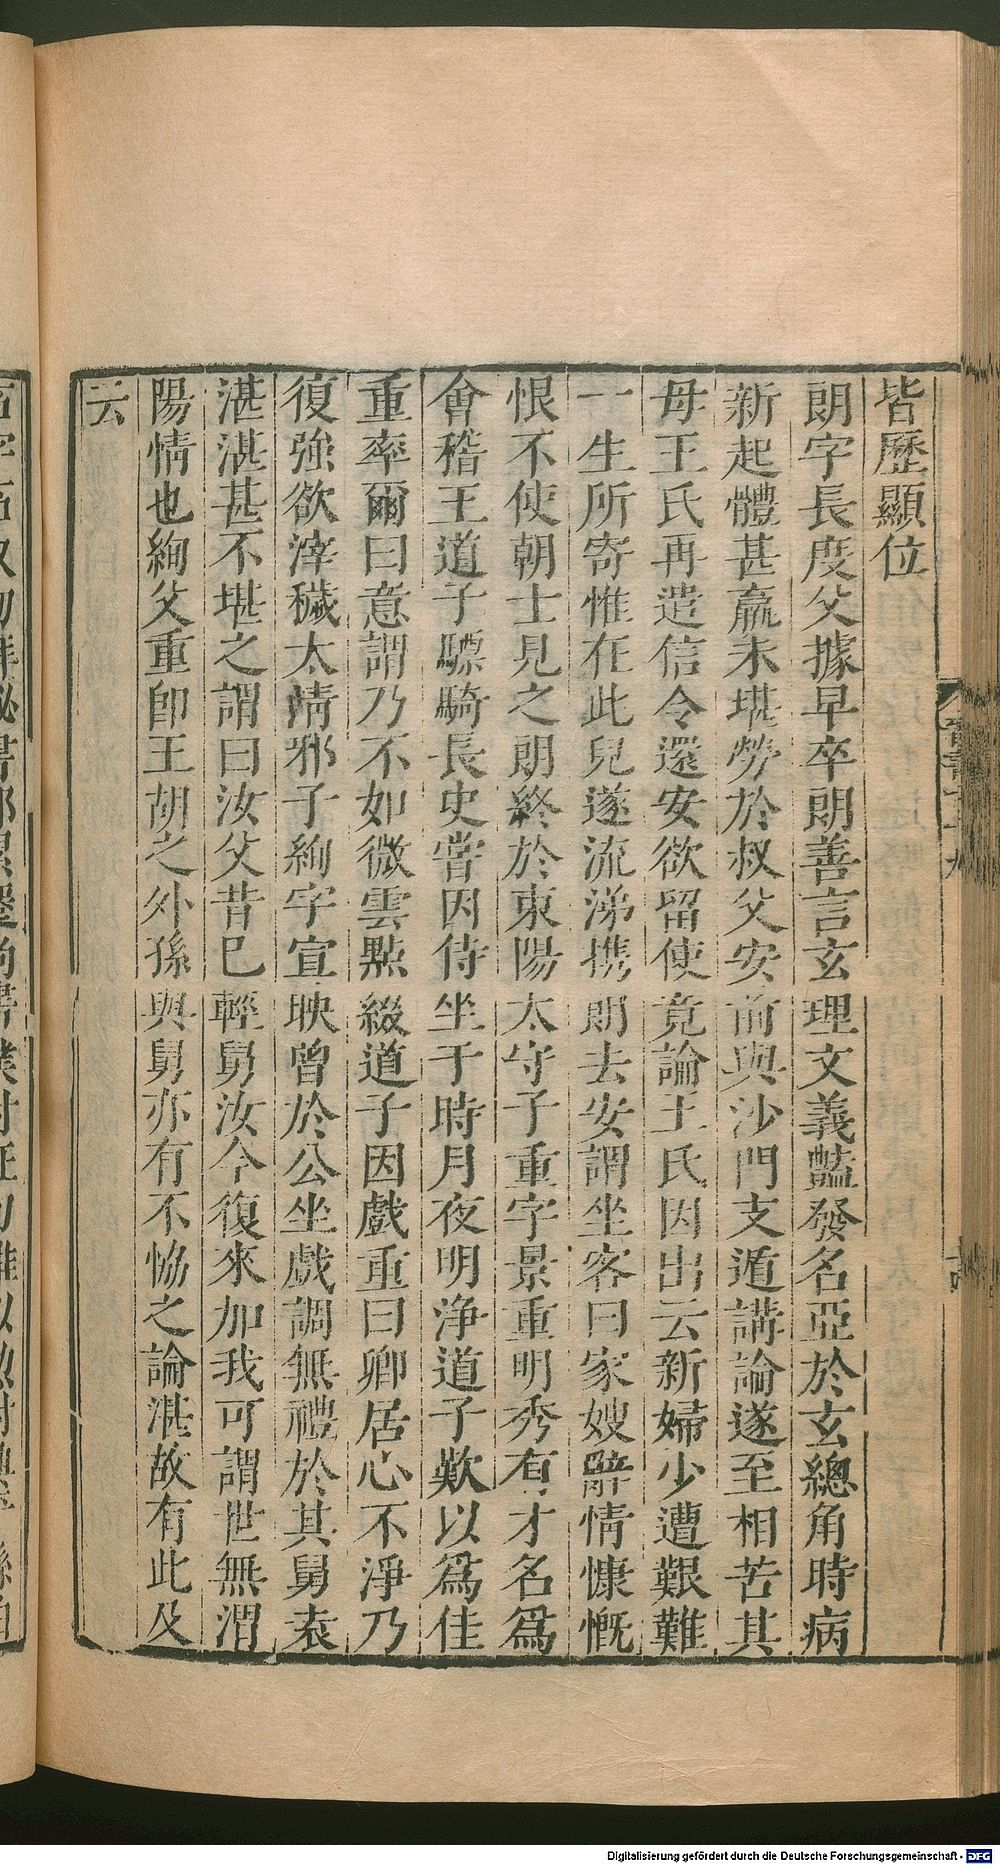 皆歷顯位
朗字長度父據早卒朗善言玄理文義豔發名亞於玄總角時病
新起體甚羸未堪勞於叔父安前與沙門支遁講論遂至相苦其
母王氏再遣信令還安欲留使竟論王氏因出云新婦少遭艱難
一生所寄惟在此兒遂流涕携朗去安謂坐客曰家嫂辭情慷慨
恨不使朝士見之朗終於東陽太守子重字景重明秀有才名爲
會稽王道子驃騎長史嘗因侍坐于時月夜明浄道子歎以爲佳
重率爾曰意謂乃不如微雲點綴道子因戲重曰卿居心不淨乃
復強欲滓穢太清邪子絢字宣映曾於公坐戲調無禮於其舅袁
湛湛甚不堪之謂曰汝父昔巳輕舅汝今復來加我可謂世無渭
陽情也絢父重卽王胡之外孫與舅亦有不恊之論湛故有此及
云
晉書七十九
Digitalisierung gefördert durch die Deutsche Forschungsgemeinschaft - DFG